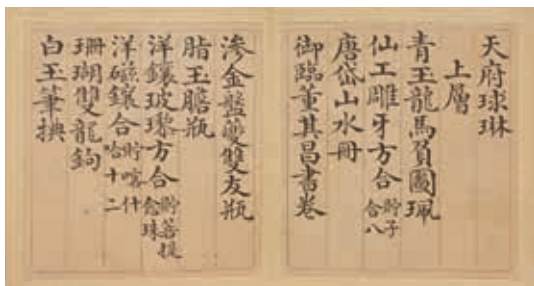 天府球琳
上層
青玉龍馬負圖珮
仙工雕牙方合 貯子合八
唐岱山水冊
御臨董其昌書卷
滲金盤雙友瓶
脂玉膽瓶
洋鑲玻瓈方合 貯菩提念珠
洋磁鑲合 貯喀什哈十二
珊瑚雙龍鉤
白玉筆